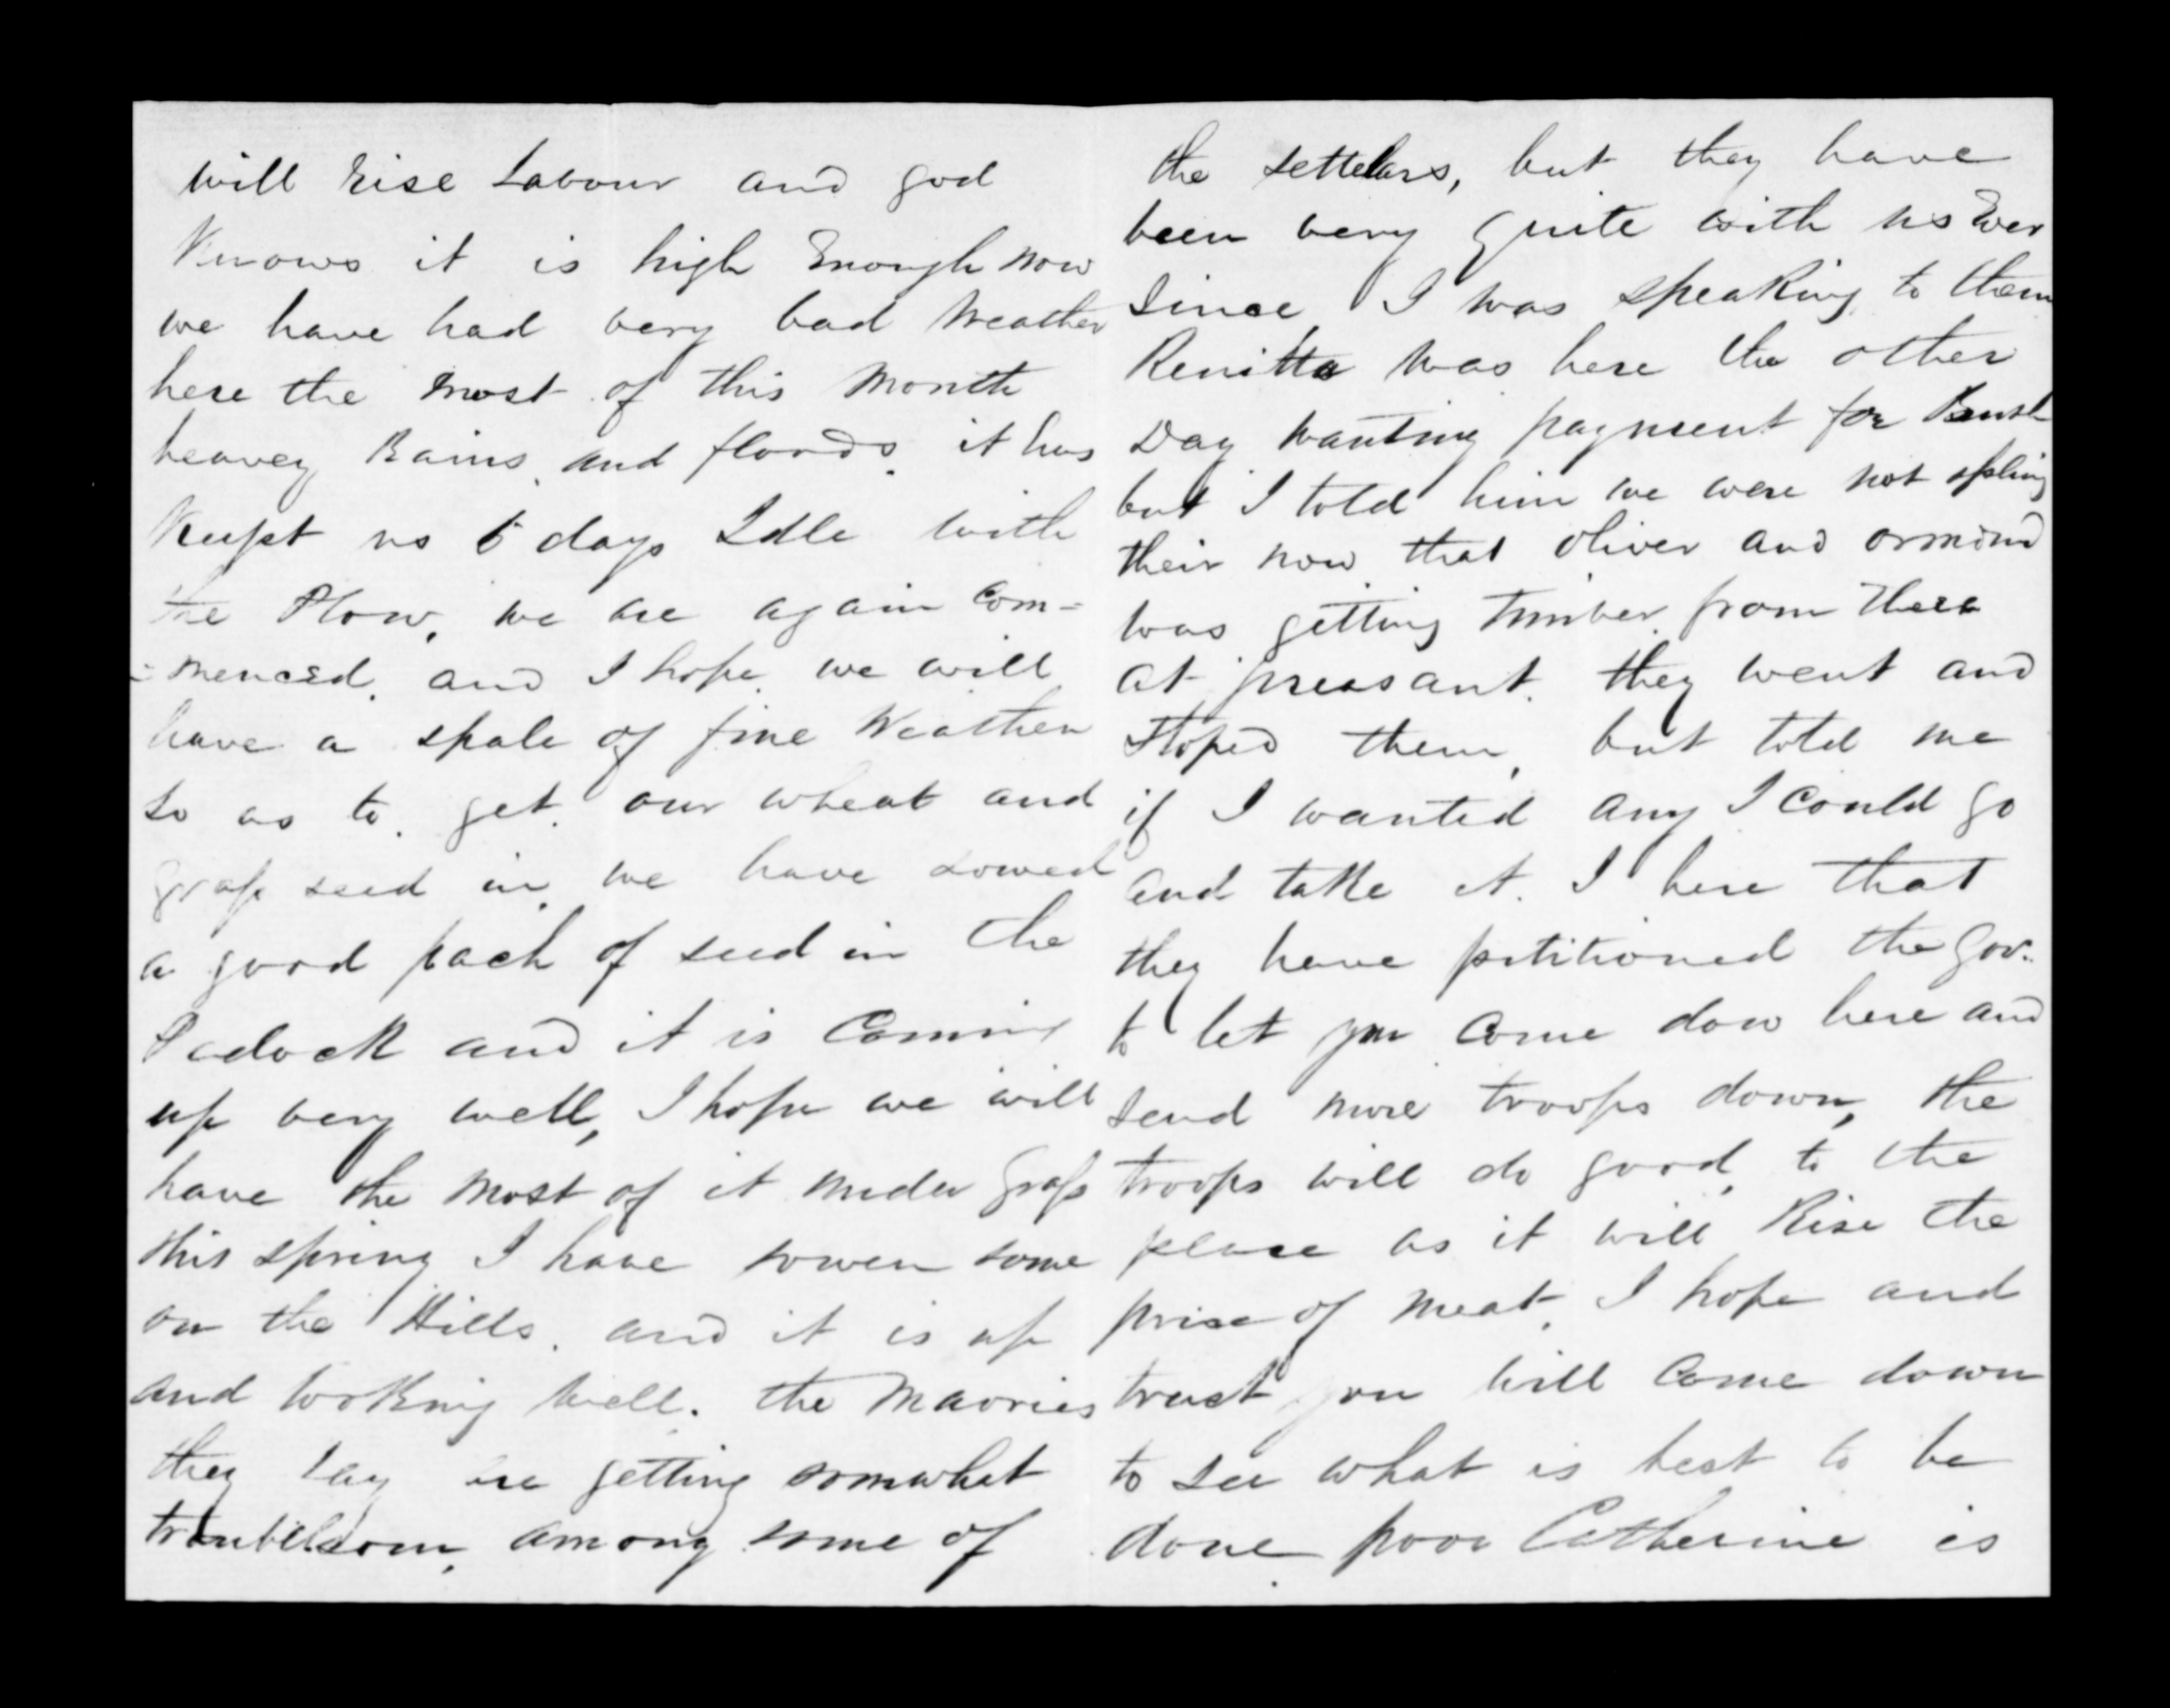 will rise Labour and god
Knows it is high Enough now
we have had very bad Weather
here the most of this Month
heavey Rains, and floods, it has
Keept us 6 days Idle with
the Plow, we are again Com-
-menced, and I hope we will
have a spale of fine Weather
so as to get our wheat and
grass seed in, we have sowed
a good pach of seed in the
Padock and it is Coming
up very well, I hope we will
have the most of it under Grass
this spring I have sowen some
on the Hills, and it is up
and looking well. the Maories
they say are getting somwhat
among some of
the settelars, but they have
been very quite with us Ever
since I was speaking to them
Renitta was here the other
Day wanting payment for Bush
but I told him we were not
their now that oliver and ormond
was getting timber from there
at preasant. they went and
stoped them, but told me
if I wanted any I Could go
and take it. I here that
they have petitioned the Gov.
to let you Come dow here and
send more troops down, the
troops will do good, to the
place as it will Rise the
prise of meat, I hope and
trust you will Come down
to see what is best to be
done poor Catherine is